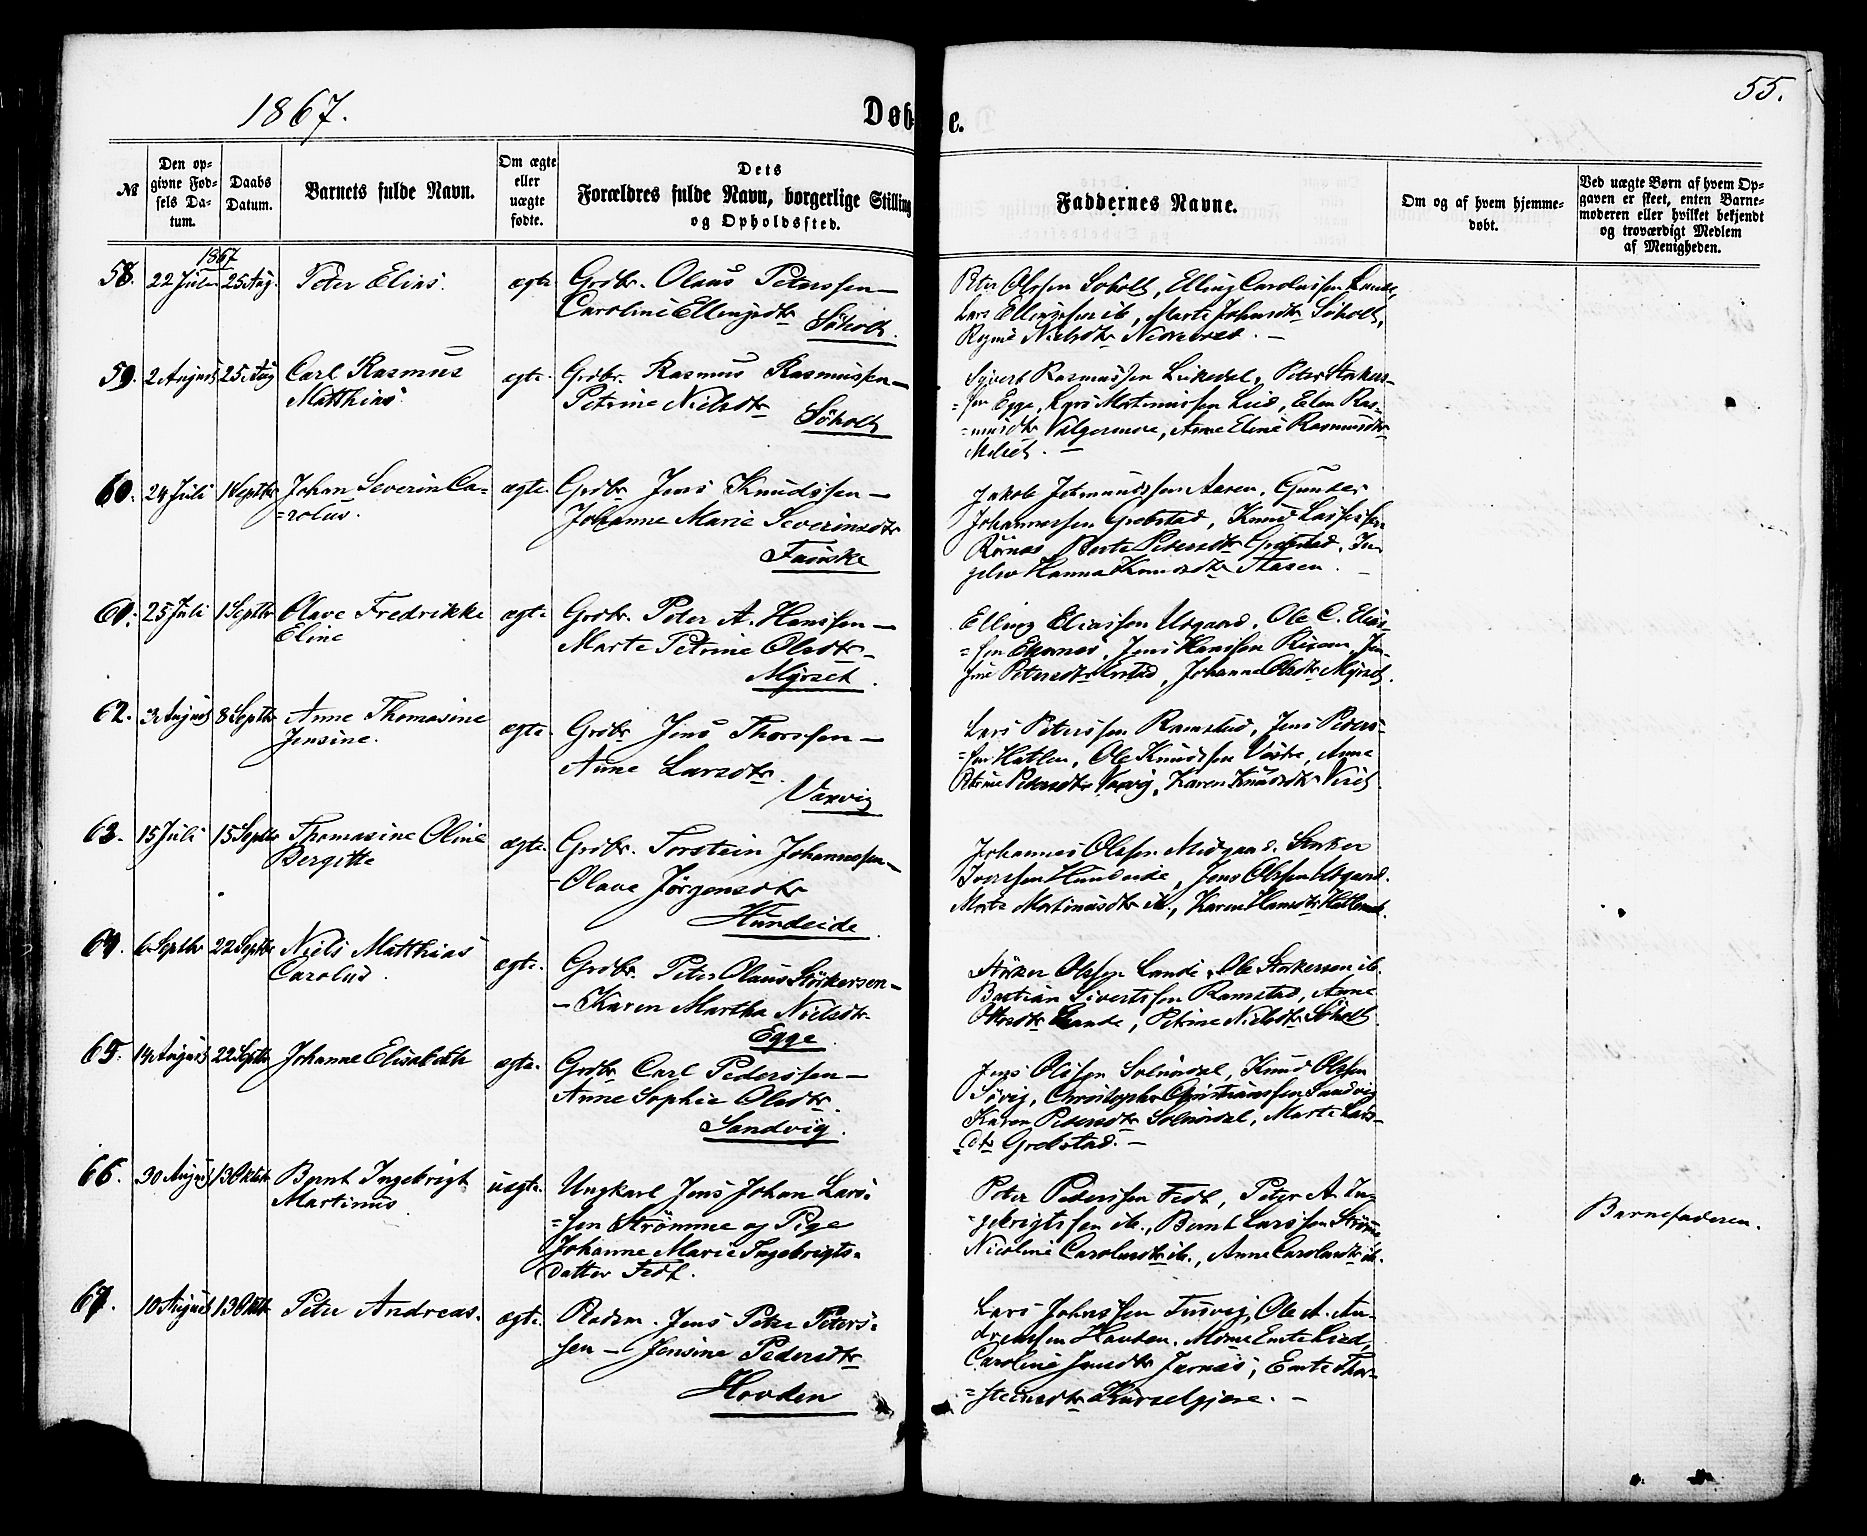 1867.
55.
Døbte.
№
Den opgivne Fødsels Datum.
Daabs Datum.
Barnets fulde Navn.
Om ægte eller uægte fødte.
Dets Forældres fulde Navn, borgerlige Stilling og Opholdssted.
Faddernes Navne.
Om og af hvem hjemmedøbt.
Ved uægte Børn af hvem Opgaven er skeet, enten Barnemoderen eller hvilket bekjendt og troværdigt Medlem af Menigheden.
1867
58. 22 Juli 25 Aug. Peter Elias. ægte Grdbr. Olaus Peterssen —
Caroline Ellingsdtr
Søholt.
Peter Olssen Søholt, Elling Carolussen Lande,
Lars Ellingssen ib, Marte Johnsdtr Søholt,
Nielsdtr
59. 2 August 25 Aug Carl Rasmus
Matthias
ægte. Grdbr. Rasmus Rasmussen —
Petrine Nielsdtr
Søholt
Syvert Rasmussen, Peter Storkers=
=sen Egge, Lars Martinussen Lied, Elen Ras=
=musdtr Valgermoe, Anne Eline Rasmusdtr
60. 24 Juli 1 Septbr Johan Severin Ca=
=rolus.
ægte. Grdbr Jens Knudssen —
Johanne Marie Severinsdtr
Fauske
Jakob Aasen, Gunder
Johannessen Grebstad, Knud
Berte Pedersdtr Grebstad,
Hanna Knudsdtr Aasen.
61. 25 Juli 1 Septbr Olave Fredrikke
Eline
ægte. Grdbr. Peter A. Hanssen —
Marte Petrine Olsdtr
Myrset.
Elling Eliassen Ursgaard, Ole C. Elias=
=sen Ekornes, Jens Hanssen Jen=
sine Petersdtr, Johanna Olsdtr Myrset.
62. 3 August 8 Septbr Anne Thomasine
Jensine.
ægte Grdbr Jens Thorssen —
Anne Larsdtr.
Vaxvig
Lars Peterssen Ramstad, Jens Peders=
=sen Hatlen, Ole Knudssen, Anne
Petrine Pedersdtr Vaxvig, Karen Knudsdtr
63. 15 Juli 15 Septbr Thomasine Oline
Bergitte
ægte. Grdbr. Torstein Johannessen —
— Olave Jørgensdtr
Hundeide.
Johannes Olssen Midgaard, Storker
Iverssen Hundeide, Jens Olssen Ursgaard.
Marte Martinusdtr ib., Karen Hansdtr
64. 6 Septbr 22 Septbr Niels Matthias
Carolus.
ægte. Grdbr. Peter Olaus Storkersen —
— Karen Martha Nielsdtr
Egge.
Storker Olssen Lande, Ole Storkersen ib.
Bastian Sivertssen Ramstad, Anne
Lande, Petrine Nielsdtr Søholt
65. 14 August 22 Septbr Johanne Elisabeth ægte. Grdbr Carl Pederssen —
Anne Sophie Olsdtr.
Sandvig.
Jens Olssen Solnørdal, Knud Olssen
Søvig, Christopher Christianssen Sandvig
Karen Pedersdtr Solnørdal, Marte Lars=
dtr Grebstad. —
66. 30 August 13 Oktbr Bernt Ingebrigt
Martinus.
uægte. Ungkarl Jens Johan Lars=
=sen Strømme og Pige
Johanne Marie Ingebrigts=
datter Fedt.
Peter Pederssen Fedt, Peter A. In=
=gebrigtssen ib., Bernt Larssen Strømme
Nicoline Carolusdtr ib., Anne Carolusdtr ib.
Barnefaderen.
67. 10 August 13 Oktbr Peter Andreas. ægte. Pladsm. Jens Peter Peters=
sen — Jensine Pedersdtr
Hovden
Lars Johnssen, Ole A. An=
dreassen
Caroline Jensdtr, Ernte Thor=
=steinsdtr